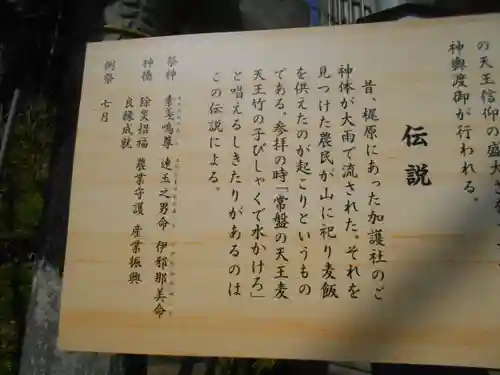 の天王信仰の盛大さを
神輿渡御が行われる。
伝説
昔、梶原にあった加護社のご
神体が大雨で流された。それを
見つけた農民が山に祀り麦飯
を供えたのが起こりというもの
である。参拝の時「常盤の天王麦
天王竹の子びしゃくで水かけろ」
と唱えるしきたりがあるのは
この伝説による。
祭神 素戔鳴尊 速玉之男命 伊邪那美命
神徳 除災招福 農業守護 産業振興
良縁成就
例祭 七月